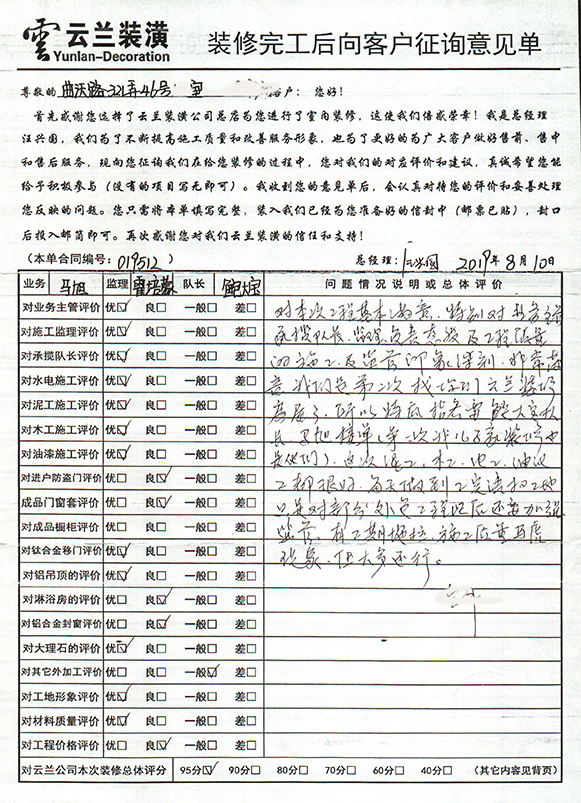 雲 云兰装潢
Yunlan-Decoration
装修完工后向客户征询意见单
尊敬的 曲沃路321弄46号 室 客户： 您好！
首先感谢您选择了云兰装潢公司总店为您进行了室内装修，这使我们倍感荣幸！我是总经理
汪兴国，我们为了不断提高施工质量和改善服务形象，也为了更好的为广大客户做好售前、售中
和售后服务，现向您征询我们在给您装修的过程中，您对我们的对应评价和建议，真诚希望您能
给予积极参与（没有的项目写无即可）。我收到您的意见单后，会认真对待您的评价和妥善处理
您反映的问题。您只需将本单填写完整，装入我们已经为您准备好的信封中（邮票已贴），封口
后投入邮筒即可。再次感谢您对我们云兰装潢的信任和支持！
（本单合同编号：019512） 总经理：汪兴国 2019年8月10日
业务 马旭 监理 队长 鲍大宝 问题情况说明或总体评价
对业务主管评价 优☑ 良□ 一般□ 差□
对施工监理评价 优☑ 良□ 一般□ 差□
对承揽队长评价 优☑ 良□ 一般□ 差□
对水电施工评价 优☑ 良□ 一般□ 差□
对泥工施工评价 优☑ 良□ 一般□ 差□
对木工施工评价 优☑ 良□ 一般□ 差□
对油漆施工评价 优☑ 良□ 一般□ 差□
对进户防盗门评价 优□ 良☑ 一般□ 差□
成品门窗套评价 优□ 良☑ 一般□ 差□
对成品橱柜评价 优□ 良□ 一般□ 差□
对钛合金移门评价 优☑ 良□ 一般□ 差□
对铝吊顶的评价 优☑ 良□ 一般□ 差□
对淋浴房的评价 优□ 良☑ 一般□ 差□
对铝合金封窗评价 优□ 良☑ 一般□ 差□
对大理石的评价 优☑ 良□ 一般□ 差□
对其它外加工评价 优□ 良□ 一般☑ 差□
对工地形象评价 优☑ 良□ 一般□ 差□
对材料质量评价 优☑ 良□ 一般□ 差□
对工程价格评价 优□ 良☑ 一般□ 差□
对云兰公司本次装修总体评分 95分☑ 90分□ 80分□ 70分□ 60分□ 40分□ （其它内容见背页）
对本次工程基本满意，特别对业务
承揽队长、监理负责态度及工程质量
印象深刻，非常满
意
泥工、木工、电工、油漆
工都很好，每天做到工完清扫工地
只是对部分外包工程以后还要加强
监管，有工期拖拉、施工质量马虎
现象，但大多还行。